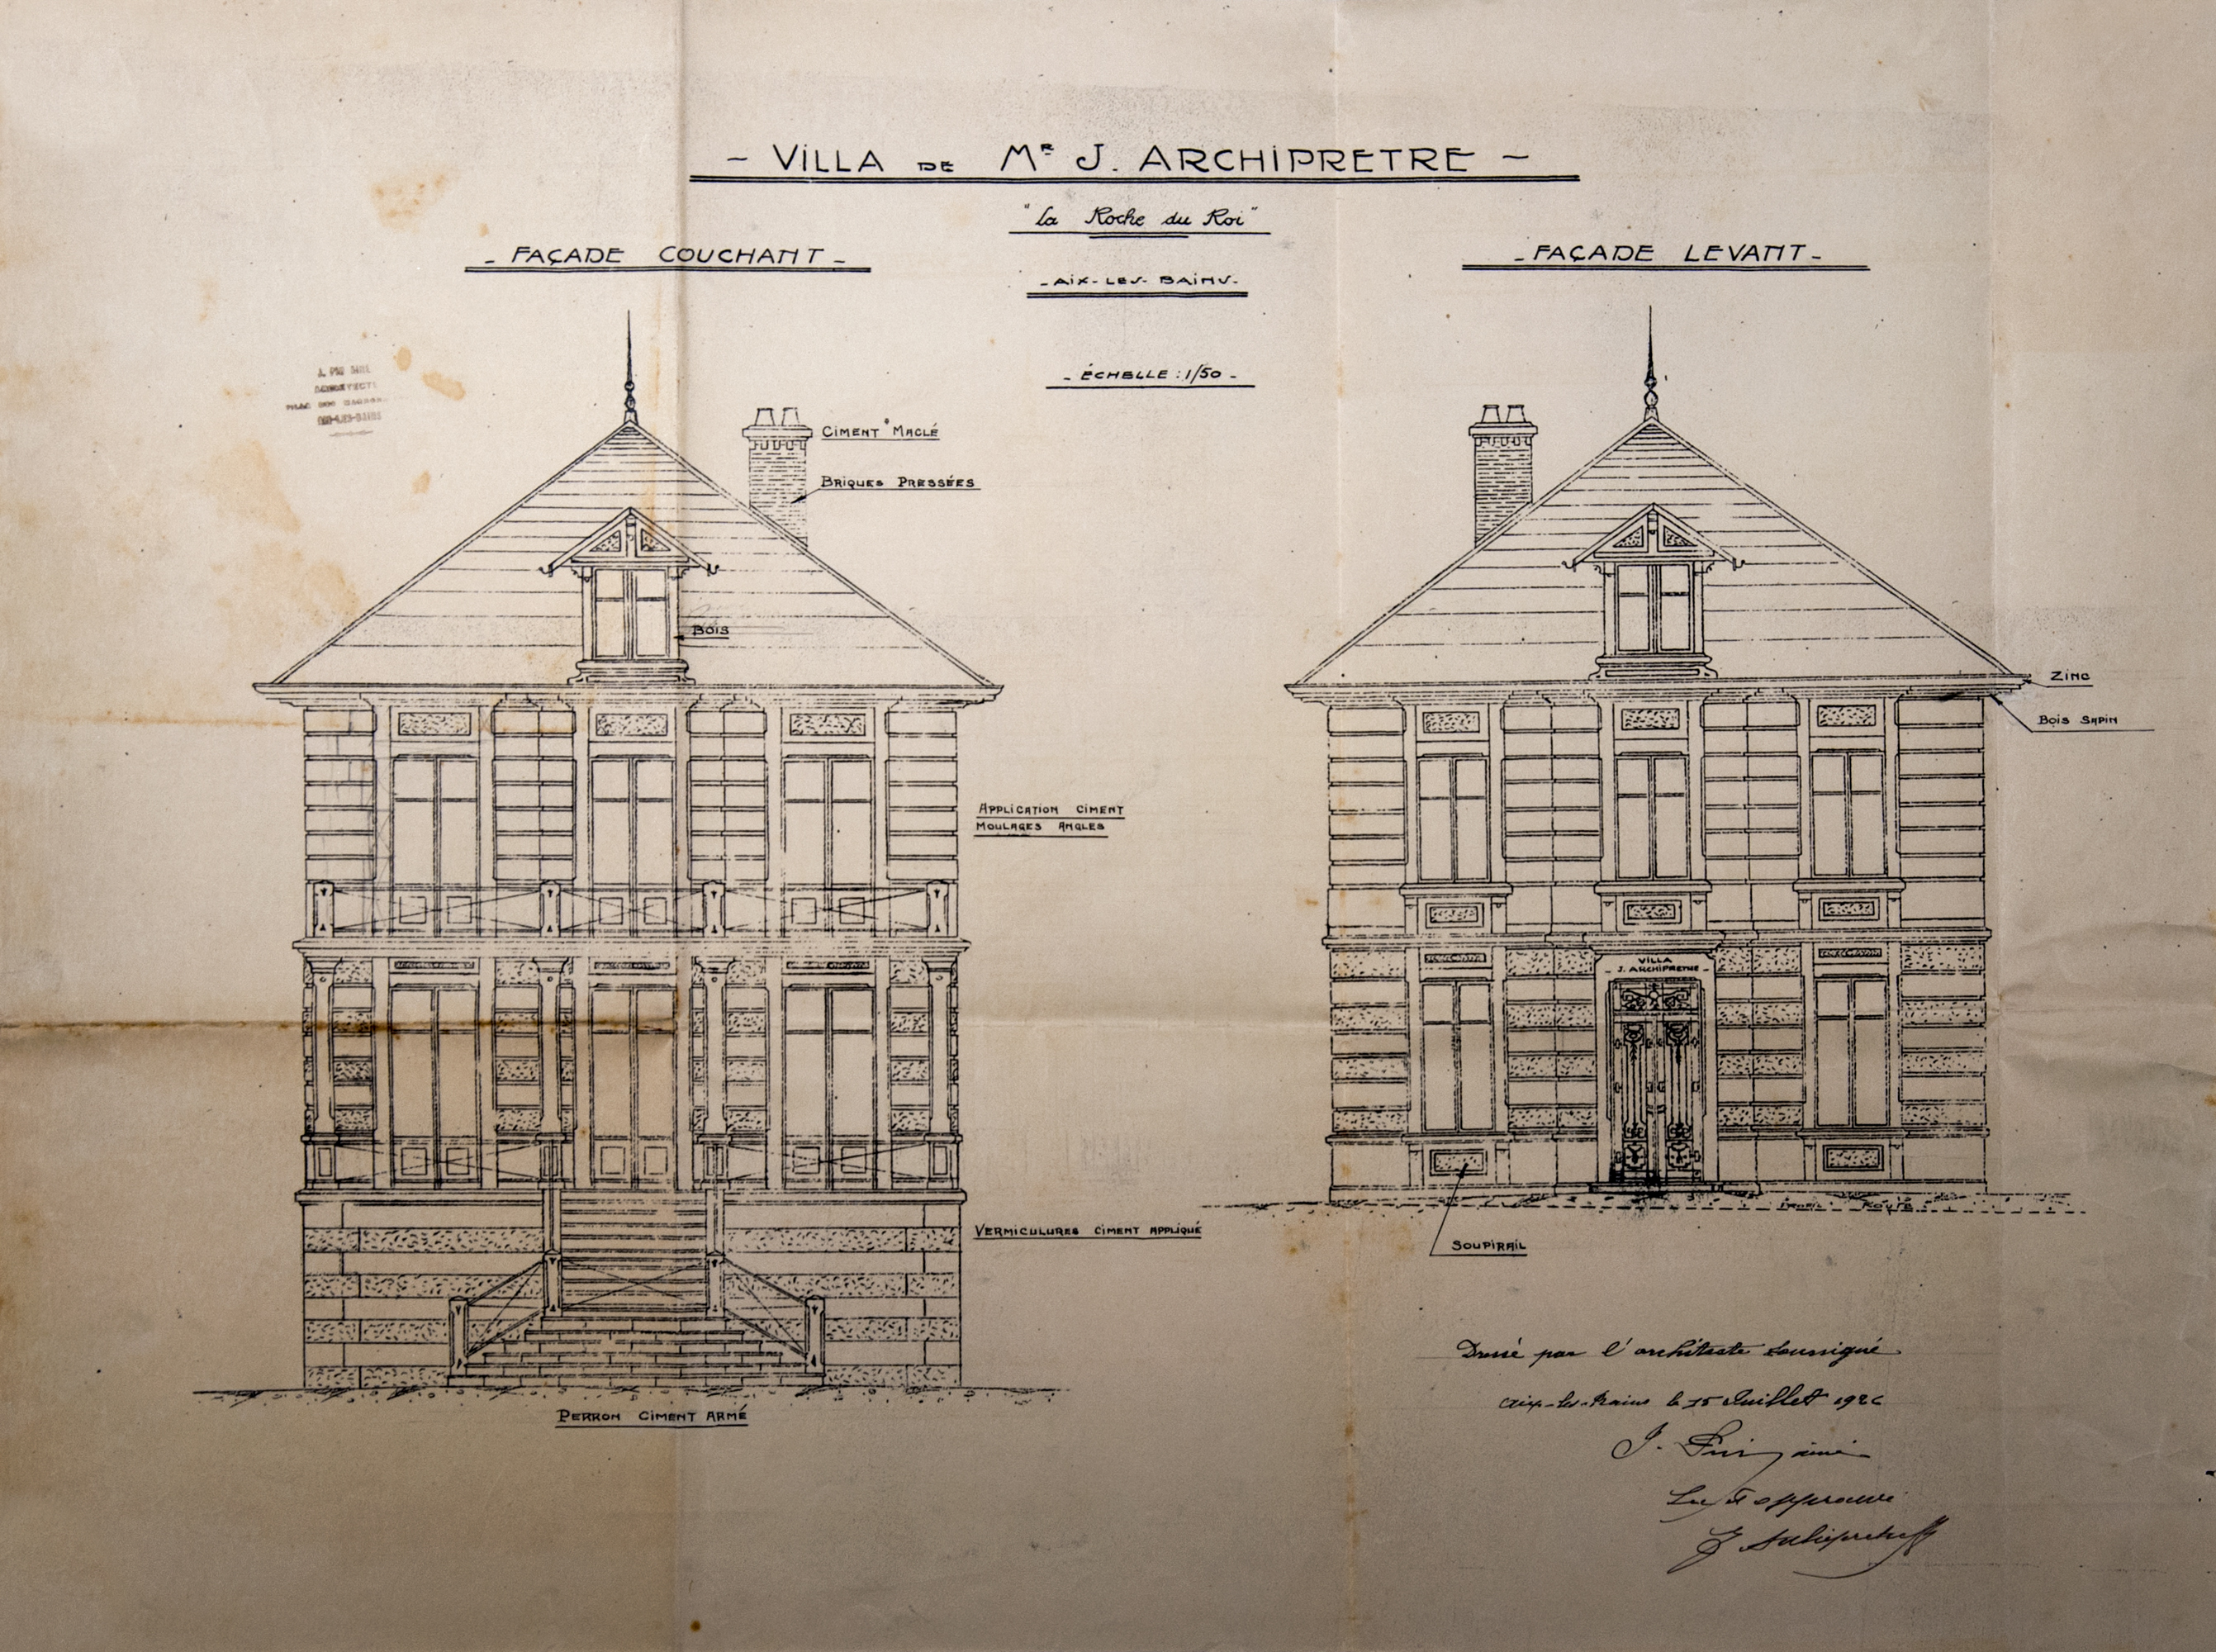 - VILLA DE Mr J. ARCHIPRETRE -
"La Roche du Roi"
- FAÇADE COUCHANT -
- FAÇADE LEVANT -
- AIX-LES-BAINS -
- ÉCHELLE : 1/50 -
CIMENT MACLÉ
BRIQUES PRESSÉES
BOIS
ZINC
BOIS SAPIN
APPLICATION CIMENT
MOULAGES ANGLES
VILLA
- J. ARCHIPRETRE -
ROUTE
VERMICULURES CIMENT APPLIQUÉ
SOUPIRAIL
PERRON CIMENT ARMÉ
Dressé par l'architecte soussigné
Aix-les-Bains le 15 Juillet 1926
Lu et approuvé
J Archipretre